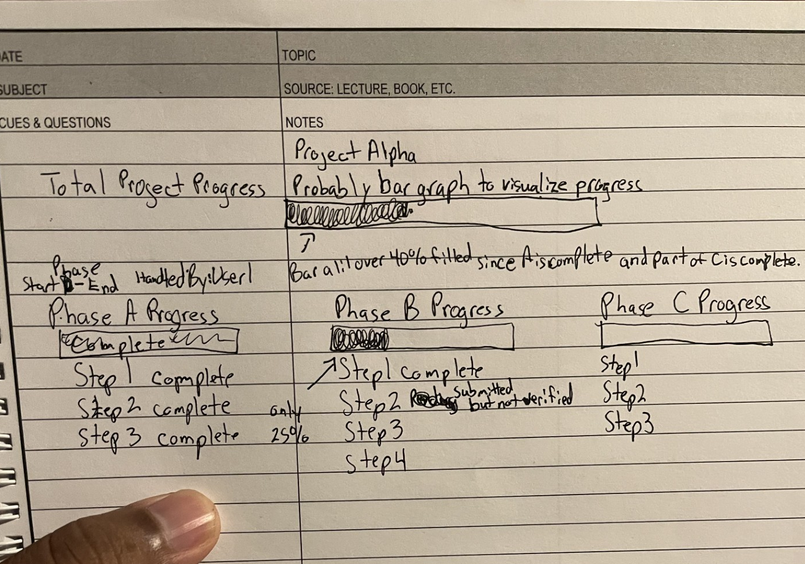 DATE
TOPIC
SUBJECT
SOURCE: LECTURE, BOOK, ETC.
CUES & QUESTIONS
NOTES
Project Alpha
Total Project Progress
Probably bar graph to visualize progress
Bar a lil over 40% filled since A is complete and part of C is complete.
Phase
Start - End HandledBy:User1
Phase A Progress
Complete
Step 1 complete
Step 2 complete
Step 3 complete
Phase B Progress
only
25%
Step 1 complete
Step 2 submitted
but not verified
Step 3
Step 4
Phase C Progress
Step 1
Step 2
Step 3